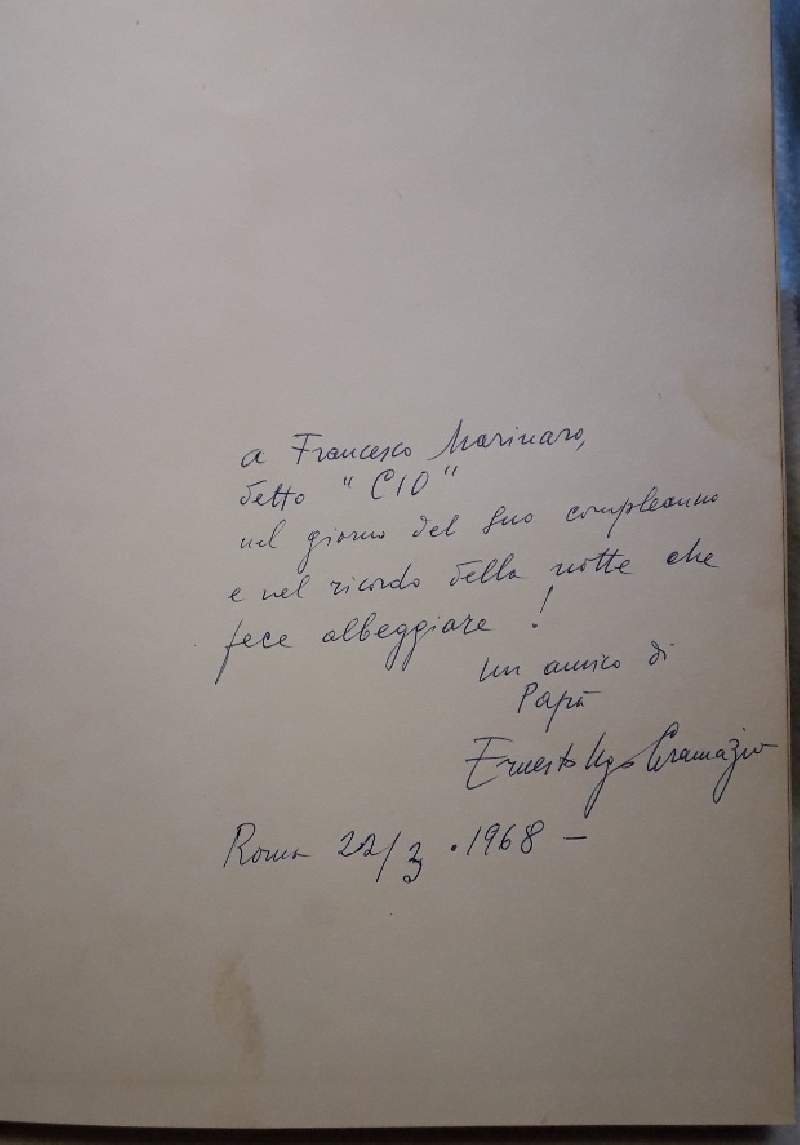 a Francesco Marinaro,
detto "CIO"
nel giorno del suo compleanno
e nel ricordo della notte che
fece albeggiare!
un amico di
Papà
Ernesto Ugo Gramazio
Roma 22/3.1968 –